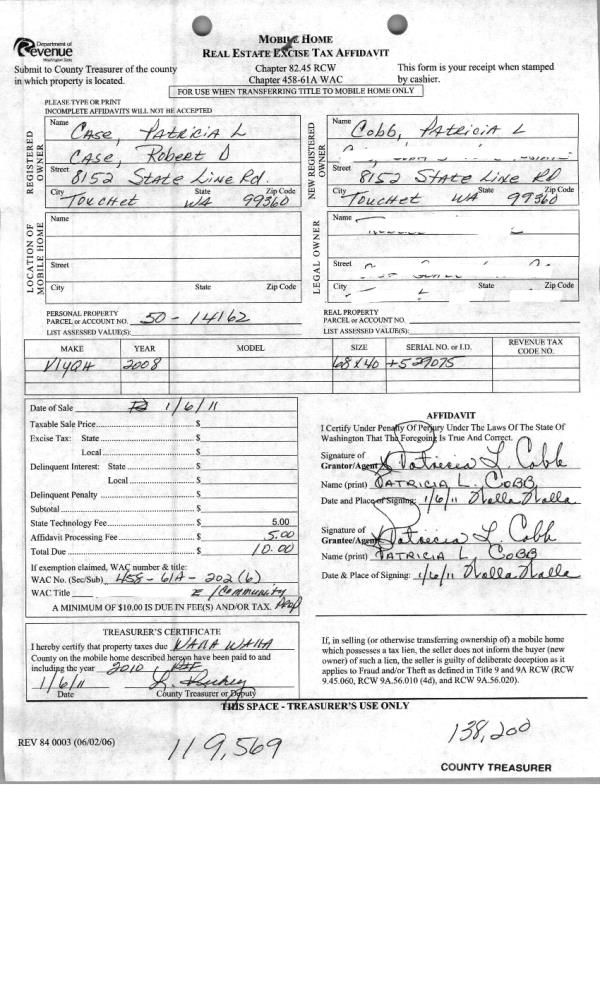 Department of
Revenue
Washington State
MOBILE HOME
REAL ESTATE EXCISE TAX AFFIDAVIT
Submit to County Treasurer of the county
in which property is located.
Chapter 82.45 RCW
Chapter 458-61A WAC
This form is your receipt when stamped
by cashier.
FOR USE WHEN TRANSFERRING TITLE TO MOBILE HOME ONLY
PLEASE TYPE OR PRINT
INCOMPLETE AFFIDAVITS WILL NOT BE ACCEPTED
REGISTERED
OWNER
Name
CASE, PATRICIA L
CASE, Robert D
Street 8152 STATE LINE Rd.
City State Zip Code
TOUCHET WA 99360
NEW REGISTERED
OWNER
Name
Cobb, PATRICIA L
Street 8152 STATE LINE RD
City State Zip Code
TOUCHET WA 99360
LOCATION OF
MOBILE HOME
Name
Street
City State Zip Code
LEGAL OWNER
Name
Street
City State Zip Code
PERSONAL PROPERTY
PARCEL or ACCOUNT NO. 50-14162
LIST ASSESSED VALUE(S):
REAL PROPERTY
PARCEL or ACCOUNT NO.
LIST ASSESSED VALUE(S):
MAKE YEAR MODEL SIZE SERIAL NO. or I.D. REVENUE TAX
CODE NO.
2008 68 X 40
Date of Sale 1/6/11
Taxable Sale Price $
Excise Tax: State $
Local $
Delinquent Interest: State $
Local $
Delinquent Penalty $
Subtotal $
State Technology Fee $ 5.00
Affidavit Processing Fee $ 5.00
Total Due $ 10.00
If exemption claimed, WAC number & title:
WAC No. (Sec/Sub) 458-61A-202(6)
WAC Title I/Community Prop
A MINIMUM OF $10.00 IS DUE IN FEE(S) AND/OR TAX.
AFFIDAVIT
I Certify Under Penalty Of Perjury Under The Laws Of The State Of
Washington That The Foregoing Is True And Correct.
Signature of
Grantor/Agent Patricia L. Cobb
Name (print) PATRICIA L. COBB
Date and Place of Signing: 1/6/11 Walla Walla
Signature of
Grantee/Agent Patricia L. Cobb
Name (print) PATRICIA L. COBB
Date & Place of Signing: 1/6/11 Walla Walla
TREASURER'S CERTIFICATE
I hereby certify that property taxes due WALLA WALLA
County on the mobile home described hereon have been paid to and
including the year 2010
1/6/11
Date County Treasurer or Deputy
If, in selling (or otherwise transferring ownership of) a mobile home
which possesses a tax lien, the seller does not inform the buyer (new
owner) of such a lien, the seller is guilty of deliberate deception as it
applies to Fraud and/or Theft as defined in Title 9 and 9A RCW (RCW
9.45.060, RCW 9A.56.010 (4d), and RCW 9A.56.020).
THIS SPACE - TREASURER'S USE ONLY
REV 84 0003 (06/02/06)
119,569
138,200
COUNTY TREASURER